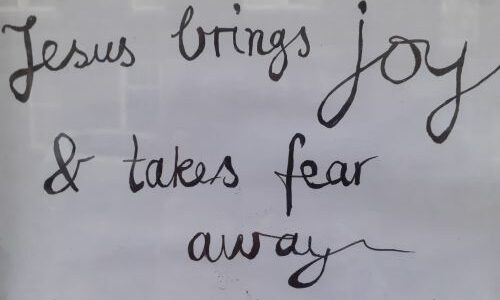 Jesus brings joy
& takes fear
away